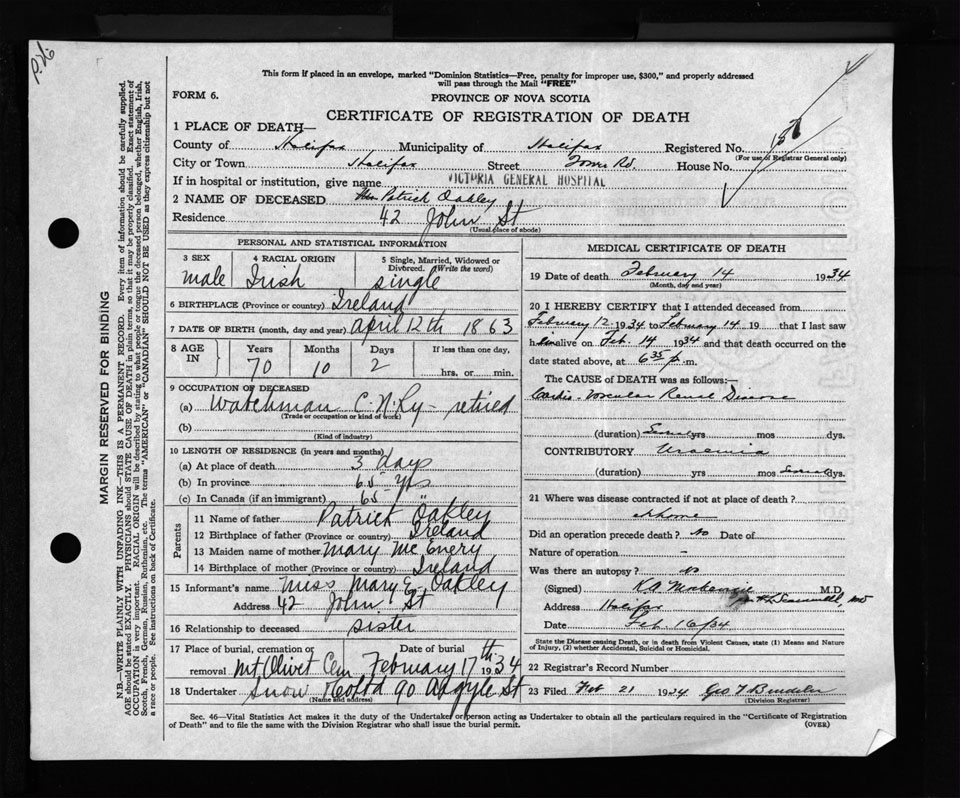 P.26
This form if placed in an envelope, marked "Dominion Statistics—Free, penalty for improper use, $300," and properly addressed
will pass through the Mail "FREE"
FORM 6.
PROVINCE OF NOVA SCOTIA
CERTIFICATE OF REGISTRATION OF DEATH
1 PLACE OF DEATH—
County of Halifax Municipality of Halifax Registered No.
(For use of Registrar General only)
City or Town Halifax Street Tower Rd. House No.
If in hospital or institution, give name VICTORIA GENERAL HOSPITAL
2 NAME OF DECEASED Wm Patrick Oakley
Residence 42 John St
(Usual place of abode)
PERSONAL AND STATISTICAL INFORMATION
3 SEX 4 RACIAL ORIGIN 5 Single, Married, Widowed or
Divorced. (Write the word)
male Irish single
6 BIRTHPLACE (Province or country) Ireland
7 DATE OF BIRTH (month, day and year) April 12th 1863
8 AGE IN Years Months Days If less than one day,
70 10 2 hrs. or min.
9 OCCUPATION OF DECEASED
(a) Watchman C.N.Ry - retired
(Trade or occupation or kind of work)
(b)
(Kind of industry)
10 LENGTH OF RESIDENCE (in years and months)
(a) At place of death 3 days
(b) In province 65 yrs
(c) In Canada (if an immigrant) 65 "
Parents
11 Name of father Patrick Oakley
12 Birthplace of father (Province or country) Ireland
13 Maiden name of mother Mary McEnery
14 Birthplace of mother (Province or country) Ireland
15 Informant's name Miss Mary E. Oakley
Address 42 John St
16 Relationship to deceased sister
17 Place of burial, cremation or removal Date of burial
Mt Olivet Cem February 17th 1934
18 Undertaker Snow & Co Ltd 90 Argyle St
(Name and address)
MEDICAL CERTIFICATE OF DEATH
19 Date of death February 14 1934
(Month, day and year)
20 I HEREBY CERTIFY that I attended deceased from
February 12 1934 to February 14 19 that I last saw
him alive on Feb. 14 1934 and that death occurred on the
date stated above, at 6 35 p.m.
The CAUSE OF DEATH was as follows:—
Cardio-Vascular Renal Disease
(duration) Several yrs mos dys.
CONTRIBUTORY Uraemia
(duration) yrs mos Several dys.
21 Where was disease contracted if not at place of death?
at home
Did an operation precede death? No Date of
Nature of operation -
Was there an autopsy? No
(Signed) K.A. Mackenzie M.D.
Address Halifax
Date Feb 16/34
State the Disease causing Death, or in death from Violent Causes, state (1) Means and Nature
of Injury, (2) whether Accidental, Suicidal or Homicidal.
22 Registrar's Record Number
23 Filed Feb 21 1934
(Division Registrar)
Sec. 46—Vital Statistics Act makes it the duty of the Undertaker or person acting as Undertaker to obtain all the particulars required in the "Certificate of Registration
of Death" and to file the same with the Division Registrar who shall issue the burial permit.
(OVER)
MARGIN RESERVED FOR BINDING
N.B.—WRITE PLAINLY WITH UNFADING INK—THIS IS A PERMANENT RECORD. Every item of information should be carefully supplied.
AGE should be stated EXACTLY. PHYSICIANS should STATE CAUSE OF DEATH in plain terms, so that it may be properly classified. Exact statement of
OCCUPATION is very important. RACIAL ORIGIN will be described by stating to what people or tongue the deceased person belonged, whether English, Irish,
Scotch, French, German, Russian, Ruthenian, etc. The terms "AMERICAN" or "CANADIAN" SHOULD NOT BE USED as they express citizenship but not
a race or people. See instructions on back of Certificate.